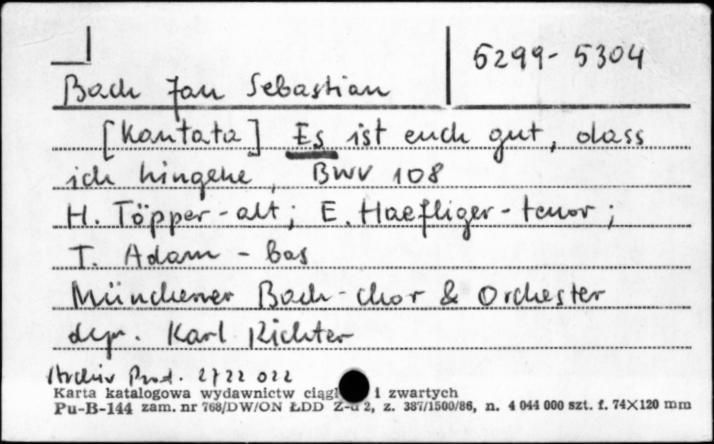 5299-5304
Bach Jan Sebastian
[Kantata] Es ist euch gut, dass
ich hingehe, BWV 108
H. Töpper-alt; E. Haefliger-tenor;
T. Adam - bas
Münchener Bach-chor & Orchester
dyr. Karl Richter
Archiv Prod. 2722 022
Karta katalogowa wydawnictw ciągł i zwartych
Pu-B-144 zam. nr 768/DW/ON ŁDD Z-d 2, z. 387/1500/86, n. 4 044 000 szt. f. 74X120 mm